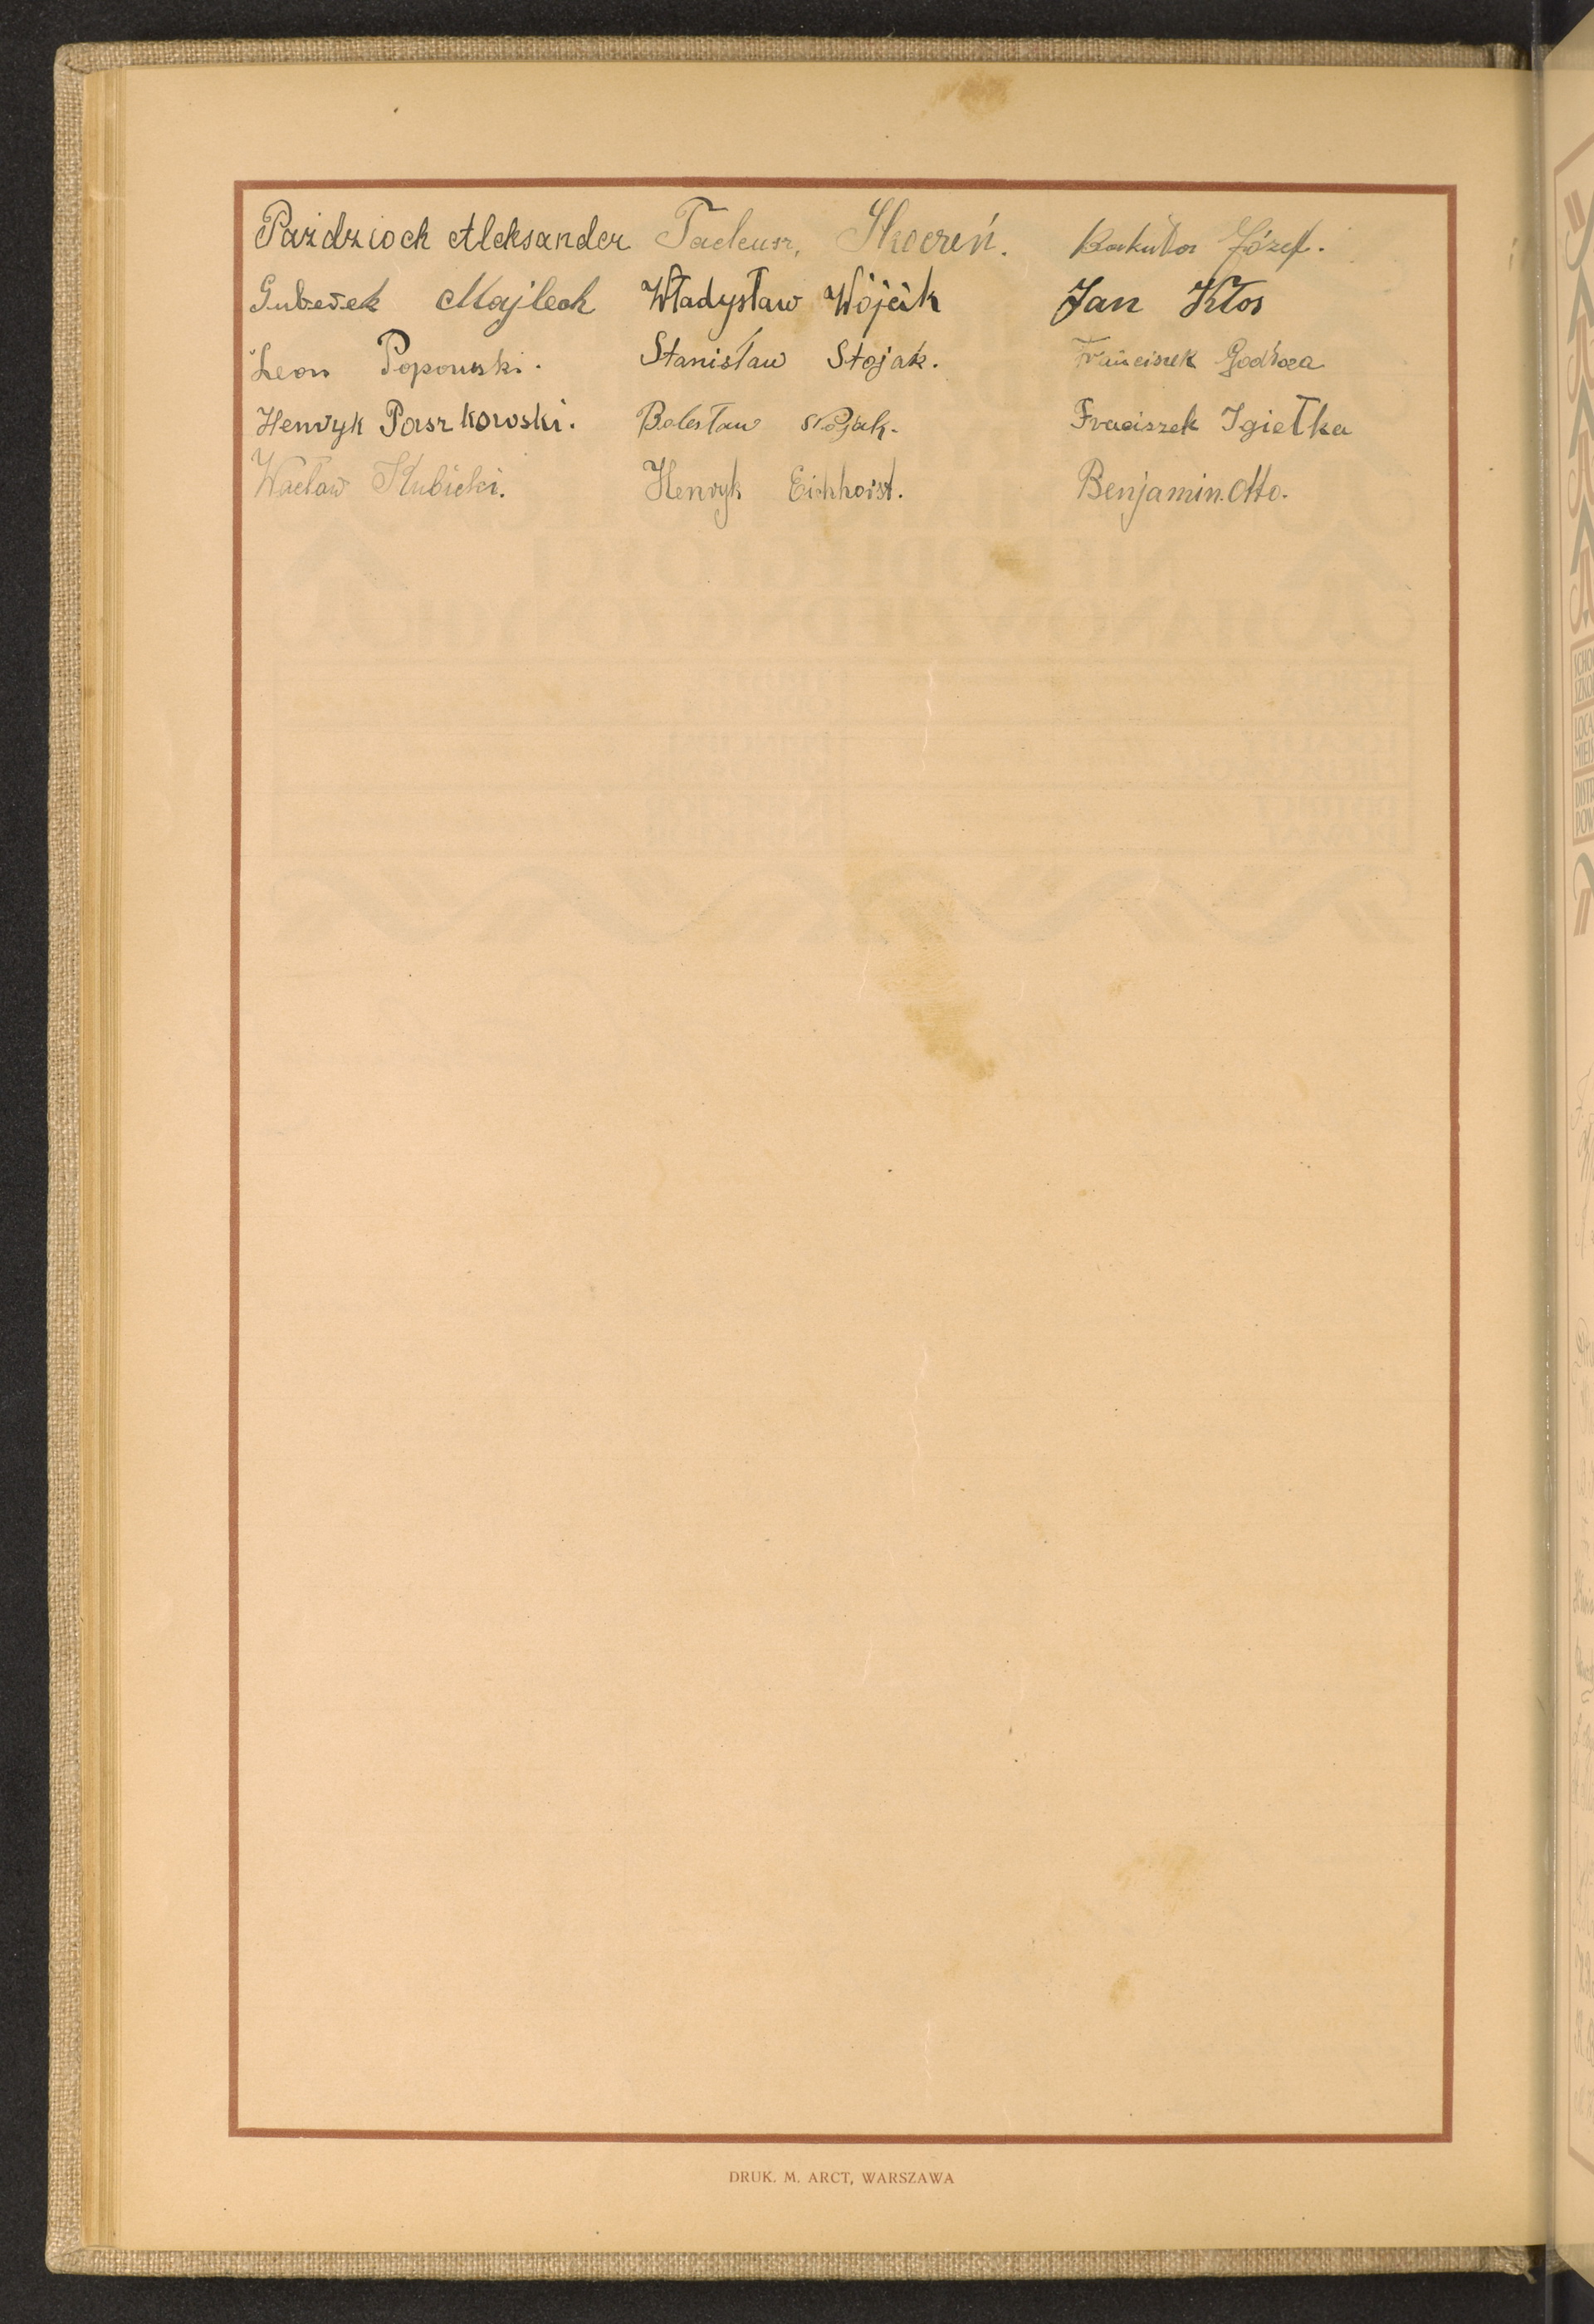 Paździoch Aleksander Tadeusz, Skoczeń. Bakuła Józef.
Majlech Władysław Wójcik Jan Kłos
Leon Popowski. Stanisław Stojak. Franciszek
Henryk Paszkowski. Bolesław Franciszek Igiełka
Wacław Kubicki. Henryk Eichhorst. Benjamin. Otto.
DRUK. M. ARCT, WARSZAWA